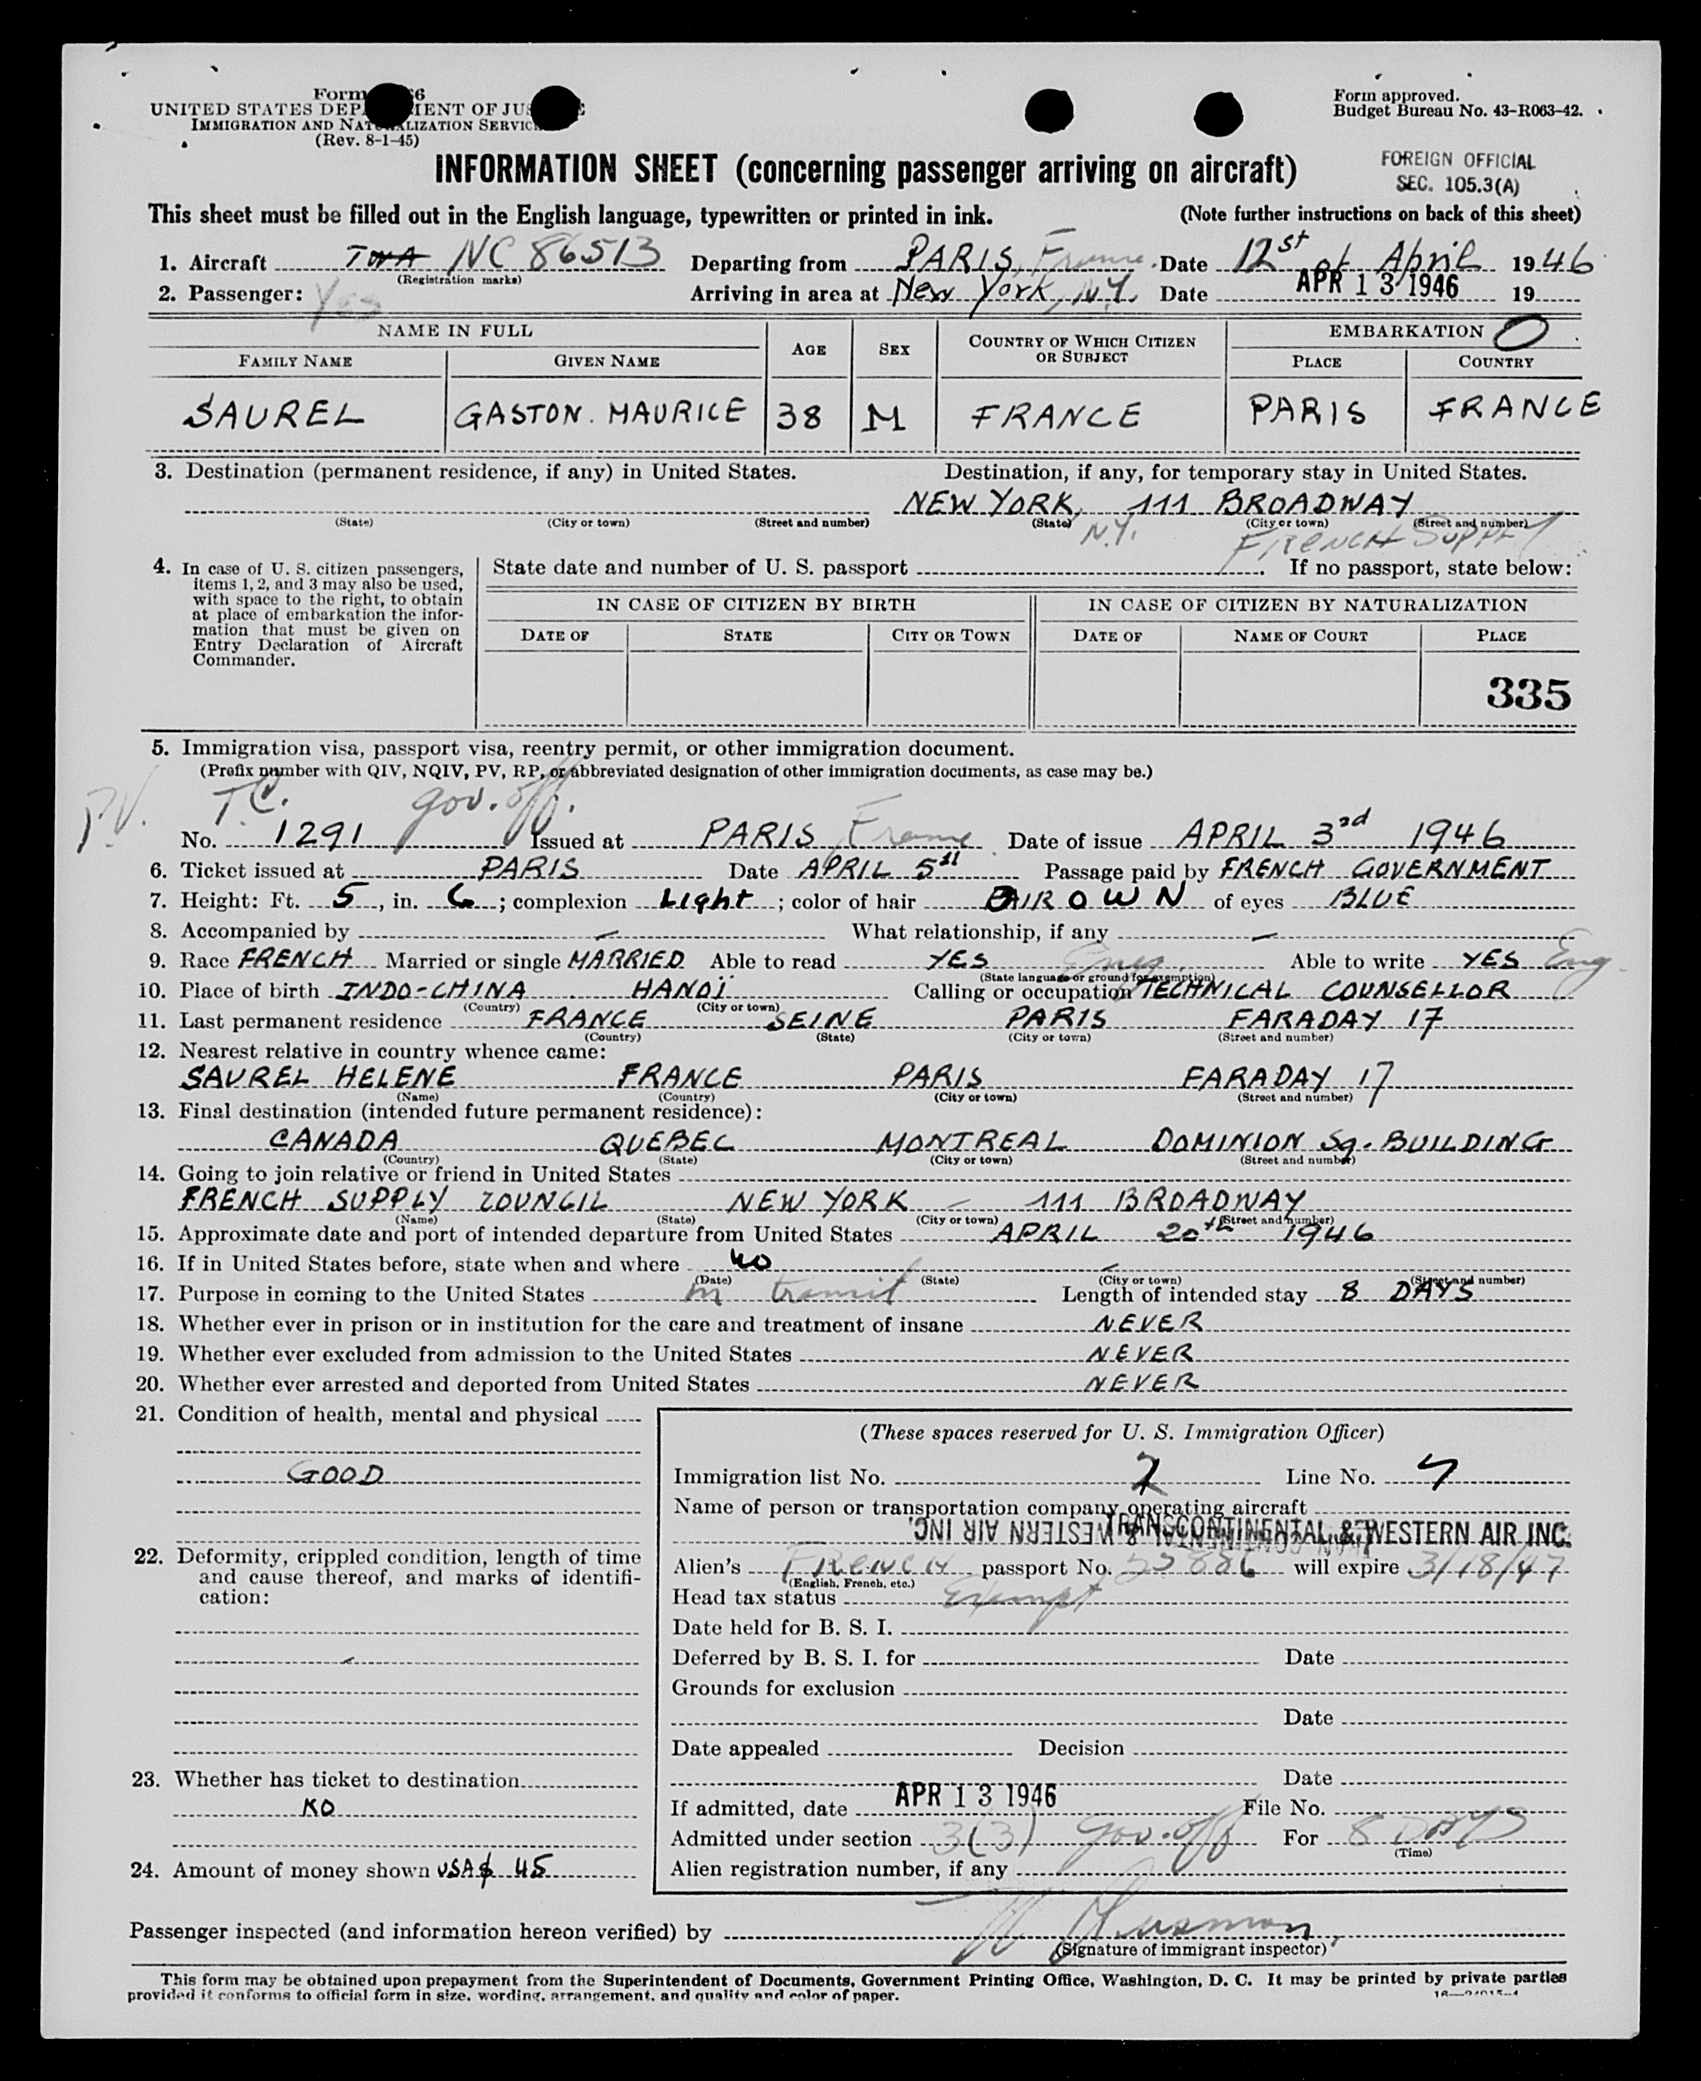 Form 66
UNITED STATES DEP MENT OF JUS E
IMMIGRATION AND NATURALIZATION SERVIC
(Rev. 8-1-45)
Form approved.
Budget Bureau No. 43-R063-42.
INFORMATION SHEET (concerning passenger arriving on aircraft)
FOREIGN OFFICIAL
SEC. 105.3(A)
This sheet must be filled out in the English language, typewritten or printed in ink. (Note further instructions on back of this sheet)
1. Aircraft TWA NC 86513 Departing from PARIS, France. Date 12st of April 1946
(Registration marks)
2. Passenger: Yes Arriving in area at New York, N.Y. Date APR 13 1946 19
NAME IN FULL AGE SEX COUNTRY OF WHICH CITIZEN OR SUBJECT EMBARKATION O
FAMILY NAME GIVEN NAME PLACE COUNTRY
SAUREL GASTON. MAURICE 38 M FRANCE PARIS FRANCE
3. Destination (permanent residence, if any) in United States. Destination, if any, for temporary stay in United States.
NEW YORK, 111 BROADWAY
(State) (City or town) (Street and number) (State) (City or town) (Street and number)
N.Y. FRENCH SUPPLY
4. In case of U. S. citizen passengers, items 1, 2, and 3 may also be used, with space to the right, to obtain at place of embarkation the information that must be given on Entry Declaration of Aircraft Commander.
State date and number of U. S. passport . If no passport, state below:
IN CASE OF CITIZEN BY BIRTH IN CASE OF CITIZEN BY NATURALIZATION
DATE OF STATE CITY OR TOWN DATE OF NAME OF COURT PLACE
335
5. Immigration visa, passport visa, reentry permit, or other immigration document.
(Prefix number with QIV, NQIV, PV, RP, or abbreviated designation of other immigration documents, as case may be.)
P.V. T.C. gov. off.
No. 1291 Issued at PARIS, France Date of issue APRIL 3rd 1946
6. Ticket issued at PARIS Date APRIL 5th Passage paid by FRENCH GOVERNMENT
7. Height: Ft. 5, in. 6; complexion Light; color of hair BROWN of eyes BLUE
8. Accompanied by — What relationship, if any —
9. Race FRENCH Married or single MARRIED Able to read YES Eng. Able to write YES Eng.
(State language or ground for exemption)
10. Place of birth INDO-CHINA HANOÏ Calling or occupation TECHNICAL COUNSELLOR
(Country) (City or town)
11. Last permanent residence FRANCE SEINE PARIS FARADAY 17
(Country) (State) (City or town) (Street and number)
12. Nearest relative in country whence came:
SAUREL HELENE FRANCE PARIS FARADAY 17
(Name) (Country) (City or town) (Street and number)
13. Final destination (intended future permanent residence):
CANADA QUEBEC MONTREAL DOMINION Sq. BUILDING
(Country) (State) (City or town) (Street and number)
14. Going to join relative or friend in United States
FRENCH SUPPLY COUNCIL NEW YORK — 111 BROADWAY
(Name) (State) (City or town) (Street and number)
15. Approximate date and port of intended departure from United States APRIL 20th 1946
16. If in United States before, state when and where NO —
(Date) (State) (City or town) (Street and number)
17. Purpose in coming to the United States in transit Length of intended stay 8 DAYS
18. Whether ever in prison or in institution for the care and treatment of insane NEVER
19. Whether ever excluded from admission to the United States NEVER
20. Whether ever arrested and deported from United States NEVER
21. Condition of health, mental and physical
GOOD
22. Deformity, crippled condition, length of time and cause thereof, and marks of identification:
—
23. Whether has ticket to destination
NO
24. Amount of money shown USA$ 45
(These spaces reserved for U. S. Immigration Officer)
Immigration list No. 2 Line No. 7
Name of person or transportation company operating aircraft
TRANSCONTINENTAL & WESTERN AIR INC.
TRANSCONTINENTAL & WESTERN AIR INC.
Alien's French passport No. will expire 3/18/47
(English, French, etc.)
Head tax status Exempt
Date held for B. S. I.
Deferred by B. S. I. for Date
Grounds for exclusion
Date
Date appealed Decision
Date
If admitted, date APR 13 1946 File No.
Admitted under section 3(3) gov. off For 8 DAYS
(Time)
Alien registration number, if any
Passenger inspected (and information hereon verified) by
(Signature of immigrant inspector)
This form may be obtained upon prepayment from the Superintendent of Documents, Government Printing Office, Washington, D. C. It may be printed by private parties
provided it conforms to official form in size, wording, arrangement, and quality and color of paper.